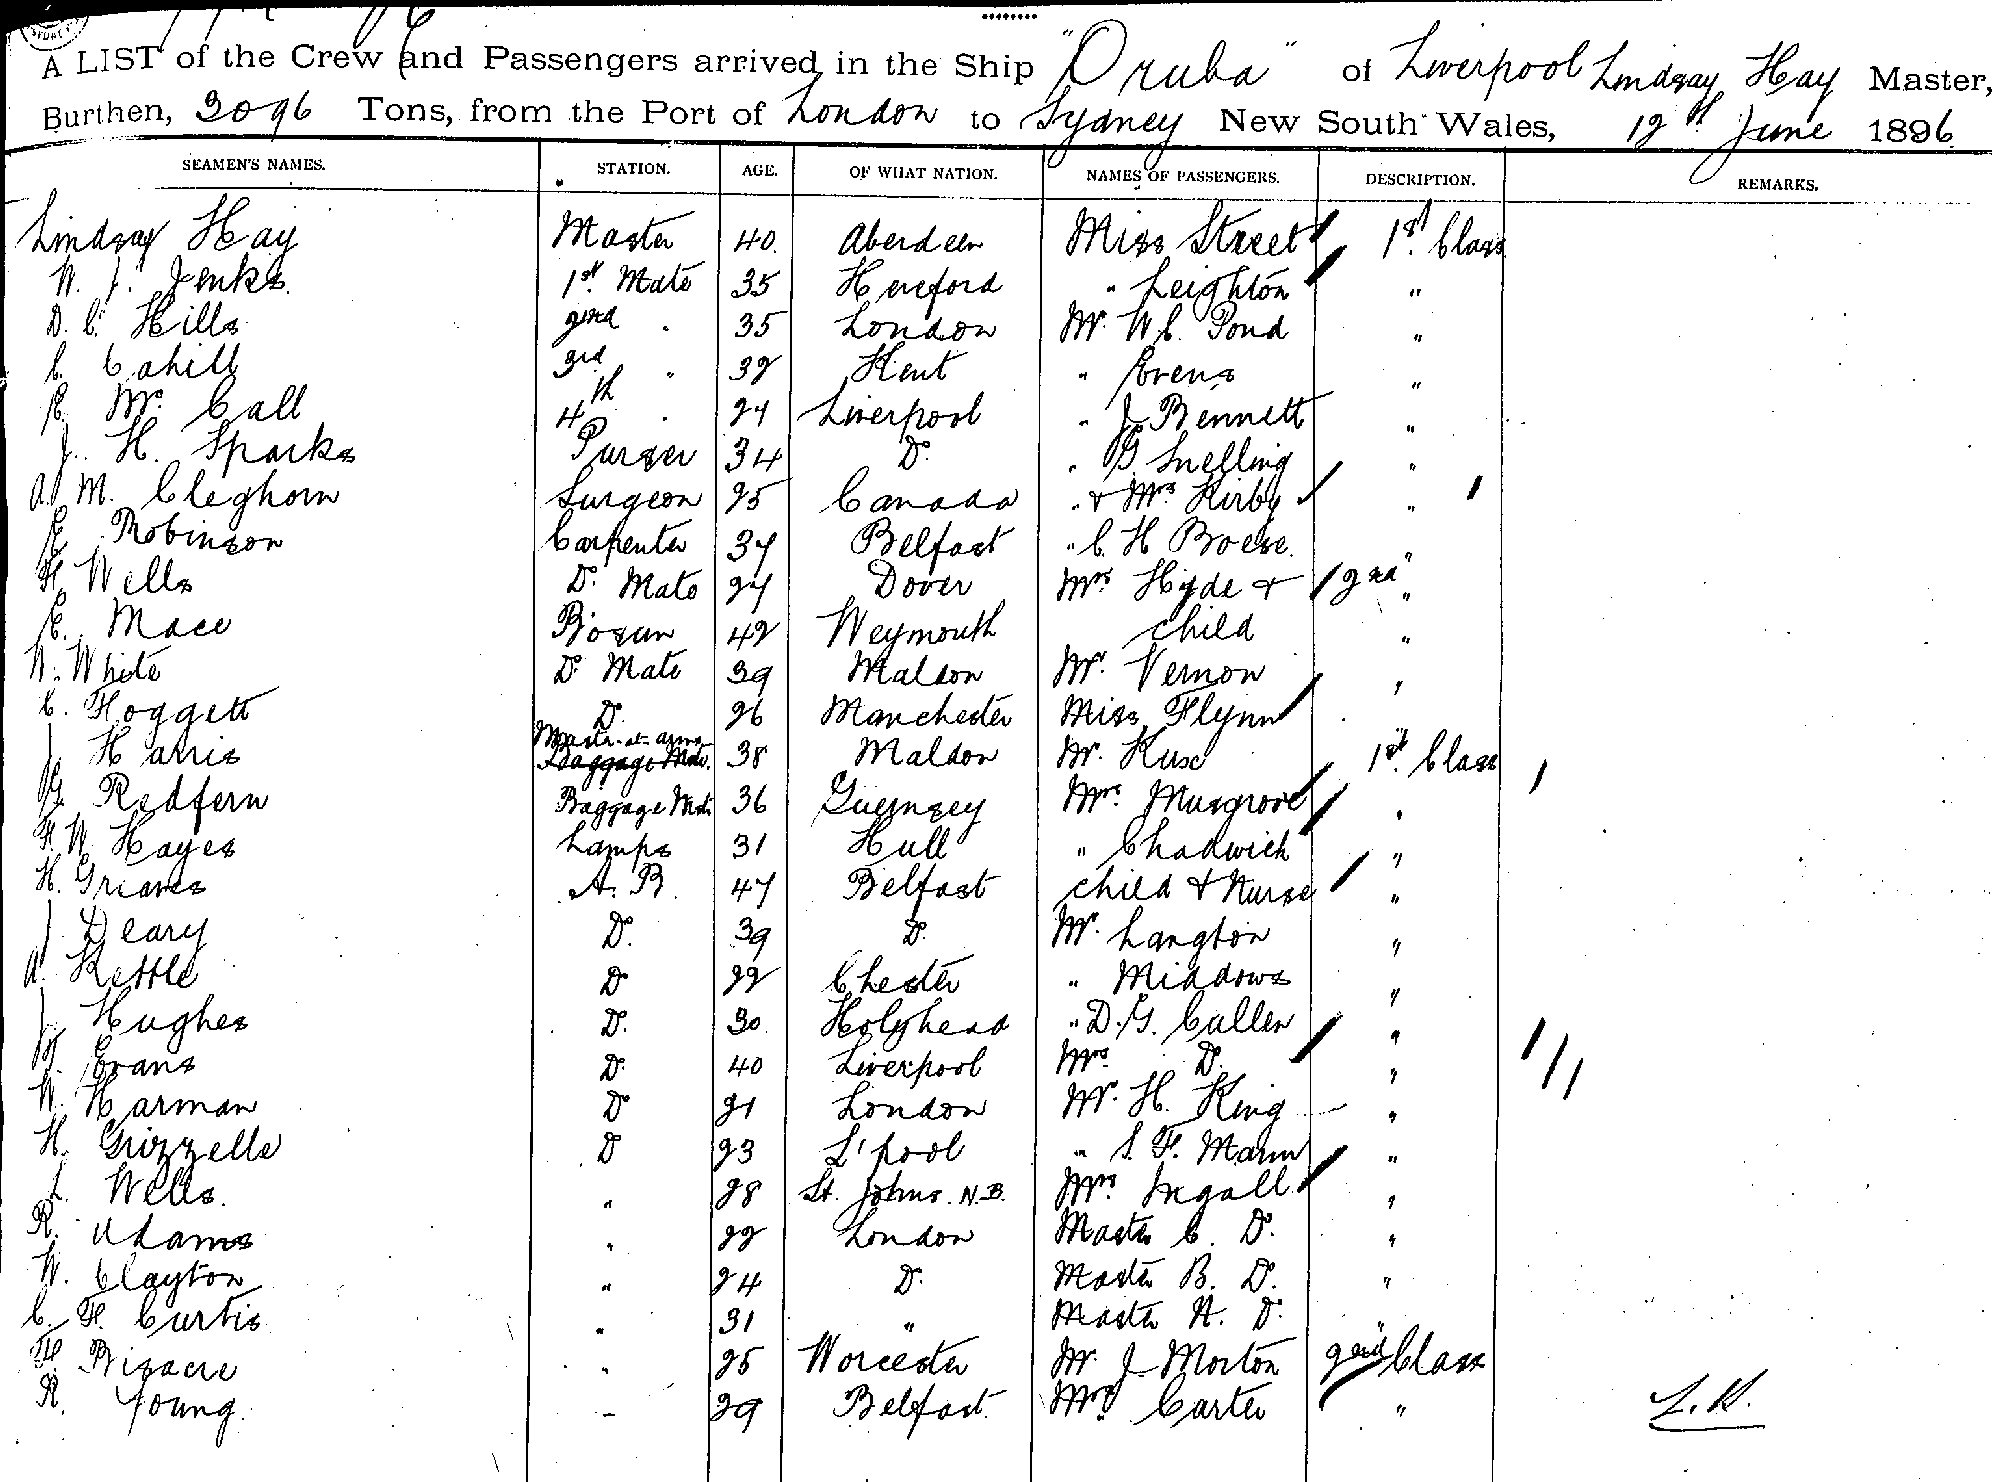 A LIST of the Crew and Passengers arrived in the Ship "Oruba" of Liverpool Lindsay Hay Master,
Burthen, 3096 Tons, from the Port of London to Sydney New South Wales, 12th June 1896
SEAMEN'S NAMES. STATION. AGE. OF WHAT NATION. NAMES OF PASSENGERS. DESCRIPTION. REMARKS.
Lindsay Hay Master 40. Aberdeen Miss Street 1st Class
W. J. Jenks. 1st Mate 35 Hereford " Leighton "
D. C. Hills 2nd " 35 London Mr. W C. Pond "
C. Cahill 3rd " 32 Kent " Evens "
E. Mc Call 4th " 24 Liverpool " J Bennett "
J. H. Sparks Purser 34 Do. " G. Snelling "
A. M. Cleghorn Surgeon 25 Canada " & Mrs Kirby "
E. Robinson Carpenter 37 Belfast " C. H Boese. "
H. Wells Do. Mate 27 Dover Mrs Hyde & 2nd "
E. Mace Bosun 42 Weymouth child "
W. White Do Mate 39 Maldon Mr. Vernon "
C. Hoggett Do. 26 Manchester Miss Flynn "
J Harris Master-at-arms 38 Maldon Mr. Kuse 1st Class
G. Redfern Baggage Mate 36 Guernsey Mrs. Musgrove "
H. W. Hayes Lamps 31 Hull " Chadwick "
H. Greaves A. B. 47 Belfast child & Nurse "
J. Deary Do. 39 Do. Mr. Langton "
A. Kettle Do 22 Chester " Middows "
J. Hughes Do. 30 Holyhead " D. G. Cullen "
Evans Do. 40 Liverpool Mrs Do. "
W. Harman Do 21 London Mr. H. King "
H. Grizzelle Do 23 L'pool " S. F. Mann "
L. Wells. " 28 St. Johns. N.B. Mrs Ingall "
R. Adams " 22 London Master C. Do. "
W. Clayton " 24 Do. Master B. Do. "
C. H. Curtis " 31 " Master N. Do. "
H. Bisacre " 25 Worcester Mr. J. Morton 2nd Class
R. Young. " 29 Belfast. Mrs. Carter "
L.H.